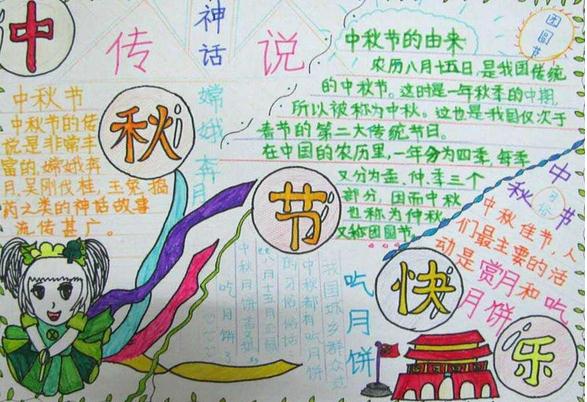 中
秋
节
快
乐
神话
传说
嫦娥奔月
中秋节
中秋节的传
说是非常丰
富的，嫦娥奔
月，吴刚伐桂，玉兔捣
药之类的神话故事
流传甚广。
中秋节的由来
农历八月十五日，是我国传统
的中秋节。这时是一年秋季的中期，
所以被称为中秋。这也是我国仅次于
春节的第二大传统节日。
在中国的农历里，一年分为四季，每季
又分为孟、仲、季三个
部分，因而中秋
也称为仲秋
又称团圆节
团圆节
中秋节
习俗
中秋佳节，人
们最主要的活
动是赏月和吃
月饼
吃月饼
我国城乡群众过
中秋都有吃月饼
的习俗，俗话
八月十五月正圆
中秋月饼香又甜
吃月饼